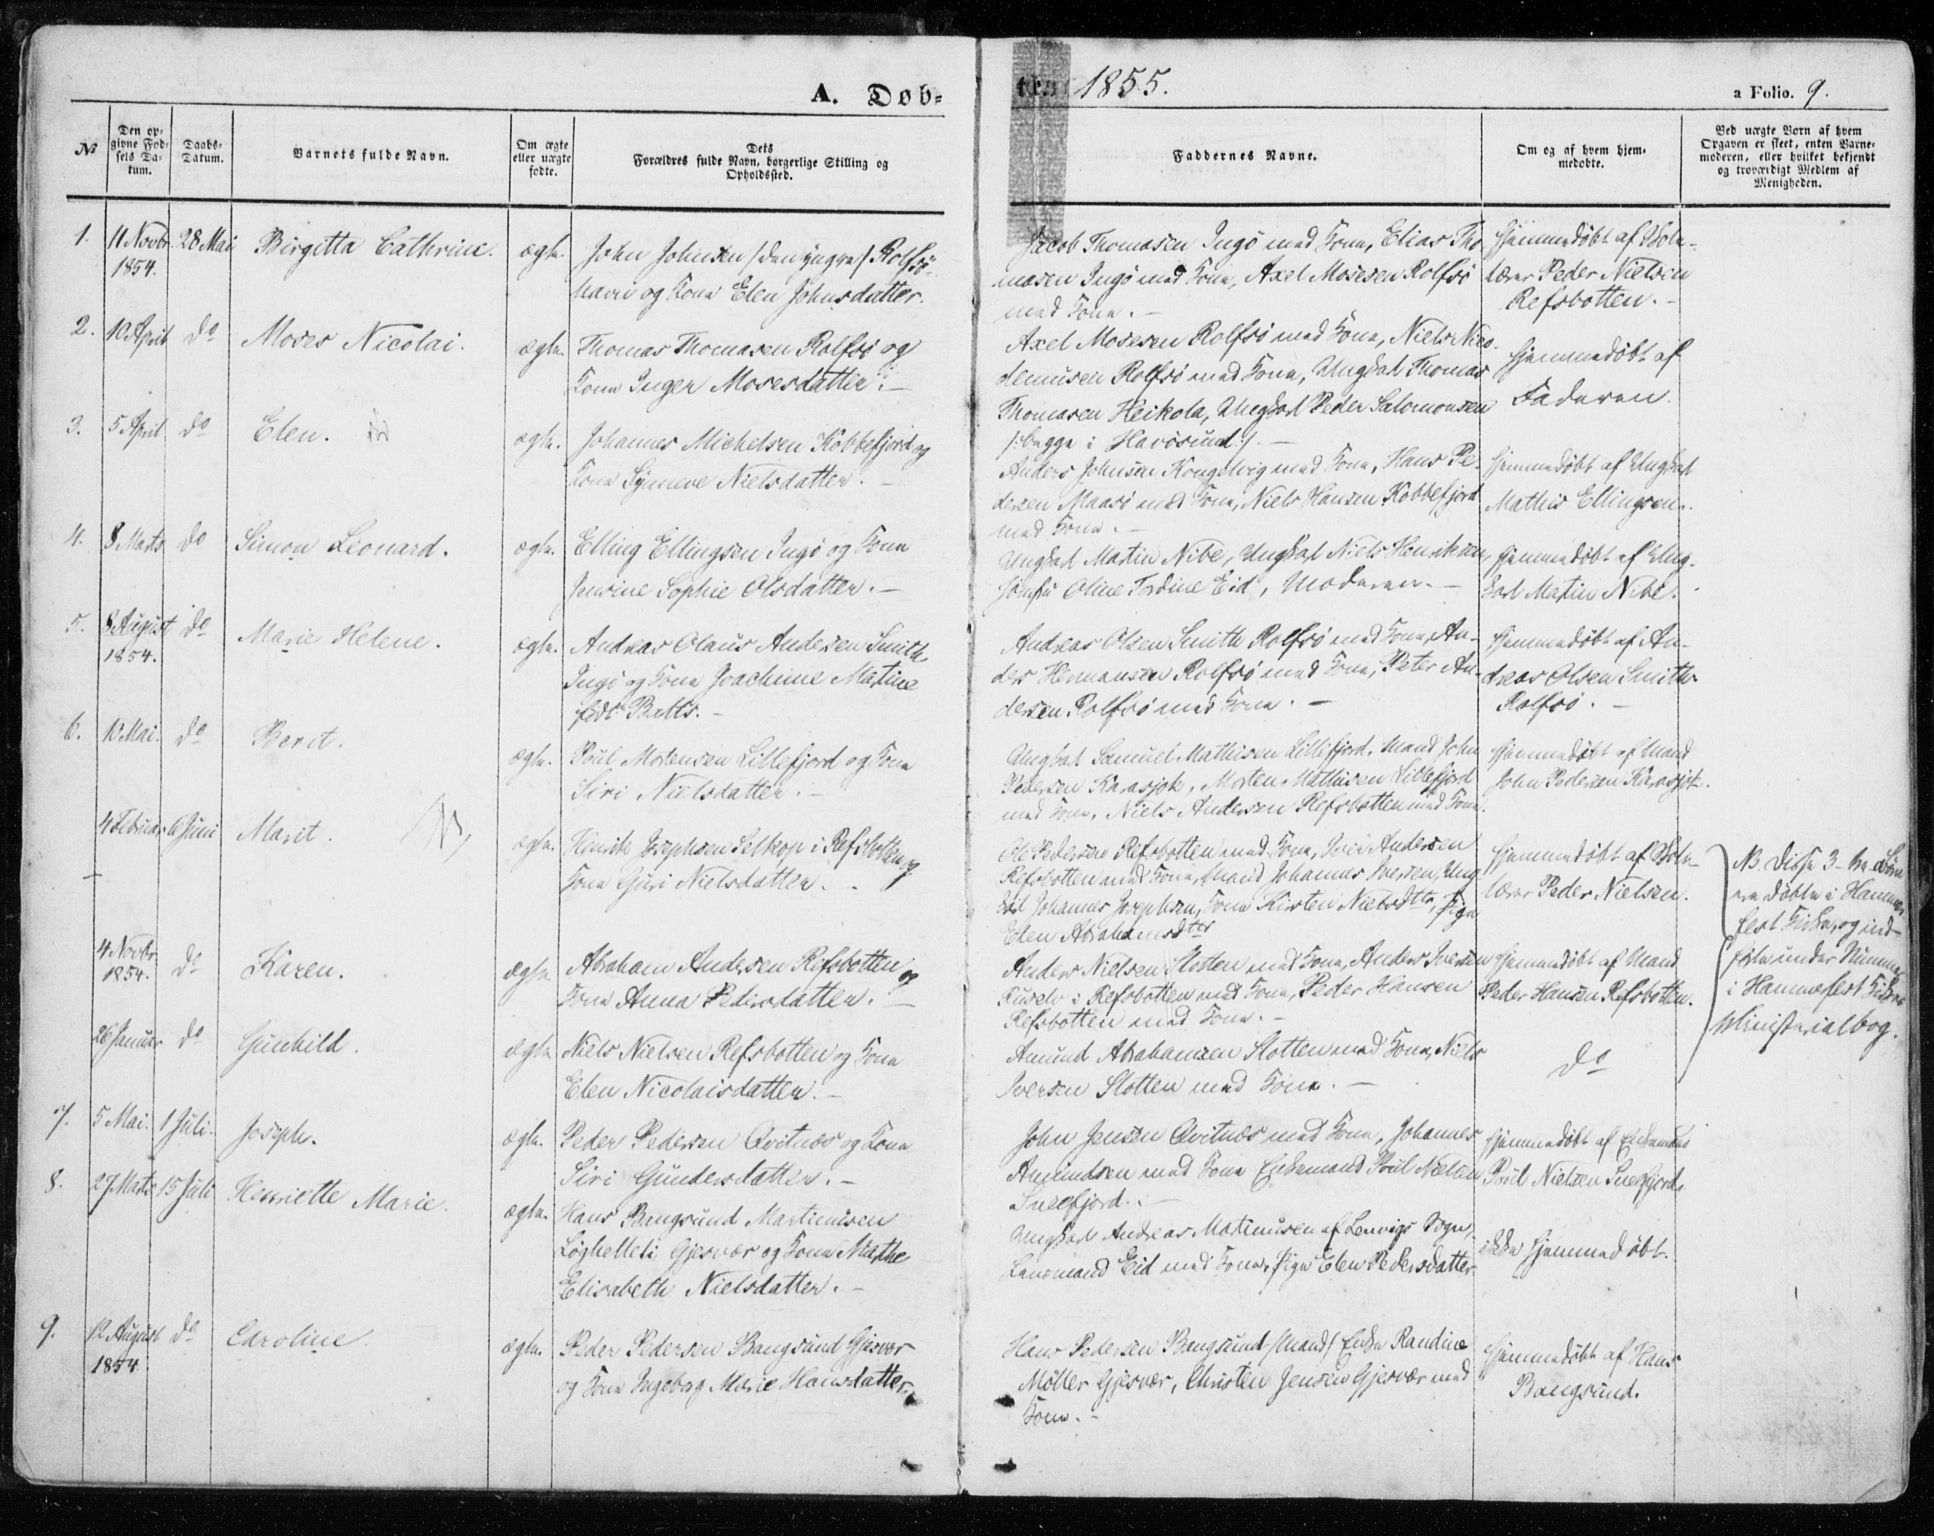 A. Døb-
No
Den op-
givne Fød-
sels Da-
tum.
Daabs-
Datum.
Barnets fulde Navn.
Om ægte
eller uægte
fødte.
Dets
Forældres fulde Navn, borgerlige Stilling og
Opholdssted.
1.
11 Novbr
1854.
28 Mai
Birgitta Cathrine.
ægte.
John Johnsen /den yngre/ Rolfsö-
havn og Kone Elen Johnsdatter.
2.
10 April
do
Moses Nicolai.
ægte.
Thomas Thomasen Rolfsö og
Kone Inger Mosesdatter. –
3.
5 April
do
Elen.
ægte.
Johannes Michelsen Kobbefjord og
Kone Synneve Nielsdatter. –
4.
8 Marts
do
Simon Leonard.
ægte.
Elling Ellingsen Ingö og Kone
Sophie Olsdatter. –
5.
8 August
1854.
do
Marie Helene.
ægte.
Andreas Olaus Andersen Smith
Ingö og Kone Joachime Martine
født
6.
10 Mai.
do
Berit.
ægte.
Poul Mortensen Lillefjord og Kone
Siri Nielsdatter. –
4 Februar
6 Juni
Marit.
ægte.
Henrik Josephsen i Refsbotten og
Kone Guri Nielsdatter.
4 Novbr
1854.
do
Karen.
ægte
Abraham Andersen Refsbotten og
Kone Anna Pedersdatter. –
26 Januar
do
Gunhild.
ægte
Niels Nielsen Refsbotten og Kone
Elen Nicolaisdatter. –
7.
5 Mai.
1 Juli.
Joseph.
ægte.
Peder Pedersen Qvitnæs og Kone
Siri Gundersdatter. –
8.
27 Marts
15 Juli
Henriette Marie.
ægte.
Hans Bangsund Martinusen
Gjesvær og Kone Marthe
Elisabeth Nielsdatter. –
9.
12 August
1854
do
Caroline
ægte.
Peder Pedersen Bangsund Gjesvær
og Kone Ingeborg Marie Hansdatter.
1855.
a Folio. 9.
Faddernes Navne.
Om og af hvem hjem-
medøbte.
Ved uægte Børn af hvem
Opgaven er skeet, enten Barne-
moderen, eller hvilket bekjendt
og troværdigt Medlem af
Menigheden.
Jacob Thomasen Ingö med Kone, Elias Tho-
masen Ingö med Kone, Axel Mosesen Rolfsö
med Kone. –
hjemmedøbt af Skole-
lærer Peder Nielsen
Refsbotten. –
Axel Mosesen Rolfsö med Kone, Niels Nico-
demusen Rolfsö med Kone, Ungkarl Thomas
Thomasen Heikola, Ungkarl Peder Salomonsen
/: begge i Havösund :/ –
hjemmedøbt af
Faderen.
Anders Johnsen Kongelvig med Kone, Hans Pe-
dersen Maasö med Kone, Niels Hansen Kobbefjord
med Kone. –
hjemmedøbt af Ungkarl
Mathis Ellingsen.
Ungkarl Martin Nibe, Ungkarl Niels Henriksen,
Jomfru Oline Eid, Moderen. –
hjemmedøbt af Ung-
karl Martin Nibe.
Andreas Olsen Smith Rolfsö med Kone, An-
ders Hermansen Rolfsö med Kone, Peter An-
dersen Rolfsö med Kone. –
hjemmedøbt af An-
dreas Olsen Smith
Rolfsö. –
Ungkarl Samuel Mathisen Lillefjord, Mand John
Pedersen Karasjok, Morten Mathisen Lillefjord
med Kone, Niels Andersen Refsbotten med Kone.
hjemmedøbt af Mand
John Pedersen Karasjok.
Ole Pedersen Refsbotten med Kone, Iver Andersen
Refsbotten med Kone, Mand Johannes Iversen, Ung-
karl Johannes Josephsen, Kone Kirsten Nielsdtr, Pige
Elen Abrahamsdtr
hjemmedøbt af Skole-
lærer Peder Nielsen.
NB. Disse 3 Børn
ere døbte i Hammer-
fest Kirke, og ind-
førte under Nummer
i Hammerfest Kirkes
Ministerialbog.
Anders Nielsen Slotten med Kone, Anders Iversen
Ruselv i Refsbotten med Kone, Peder Hansen
Refsbotten med Kone. –
hjemmedøbt af Mand
Peder Hansen Refsbotten.
Amund Abrahamsen Slotten med Kone, Niels
Iversen Slotten med Kone. –
do
John Jensen Qvitnæs med Kone, Johannes
Amundsen med Kone Enkemand Poul Nielsen
Sneefjord. –
hjemmedøbt af Enkemand
Poul Nielsen Sneefjord.
Ungkarl Andreas Martinusen af Lenvigs Sogn,
Eid med Kone, Pige Elen Pedersdatter
ikke hjemmedøbt.
Hans Pedersen Bangsund /Mand/ Enke Randine
Möller Gjesvær, Christen Jensen Gjesvær med
Kone. –
hjemmedøbt af Hans
Bangsund.